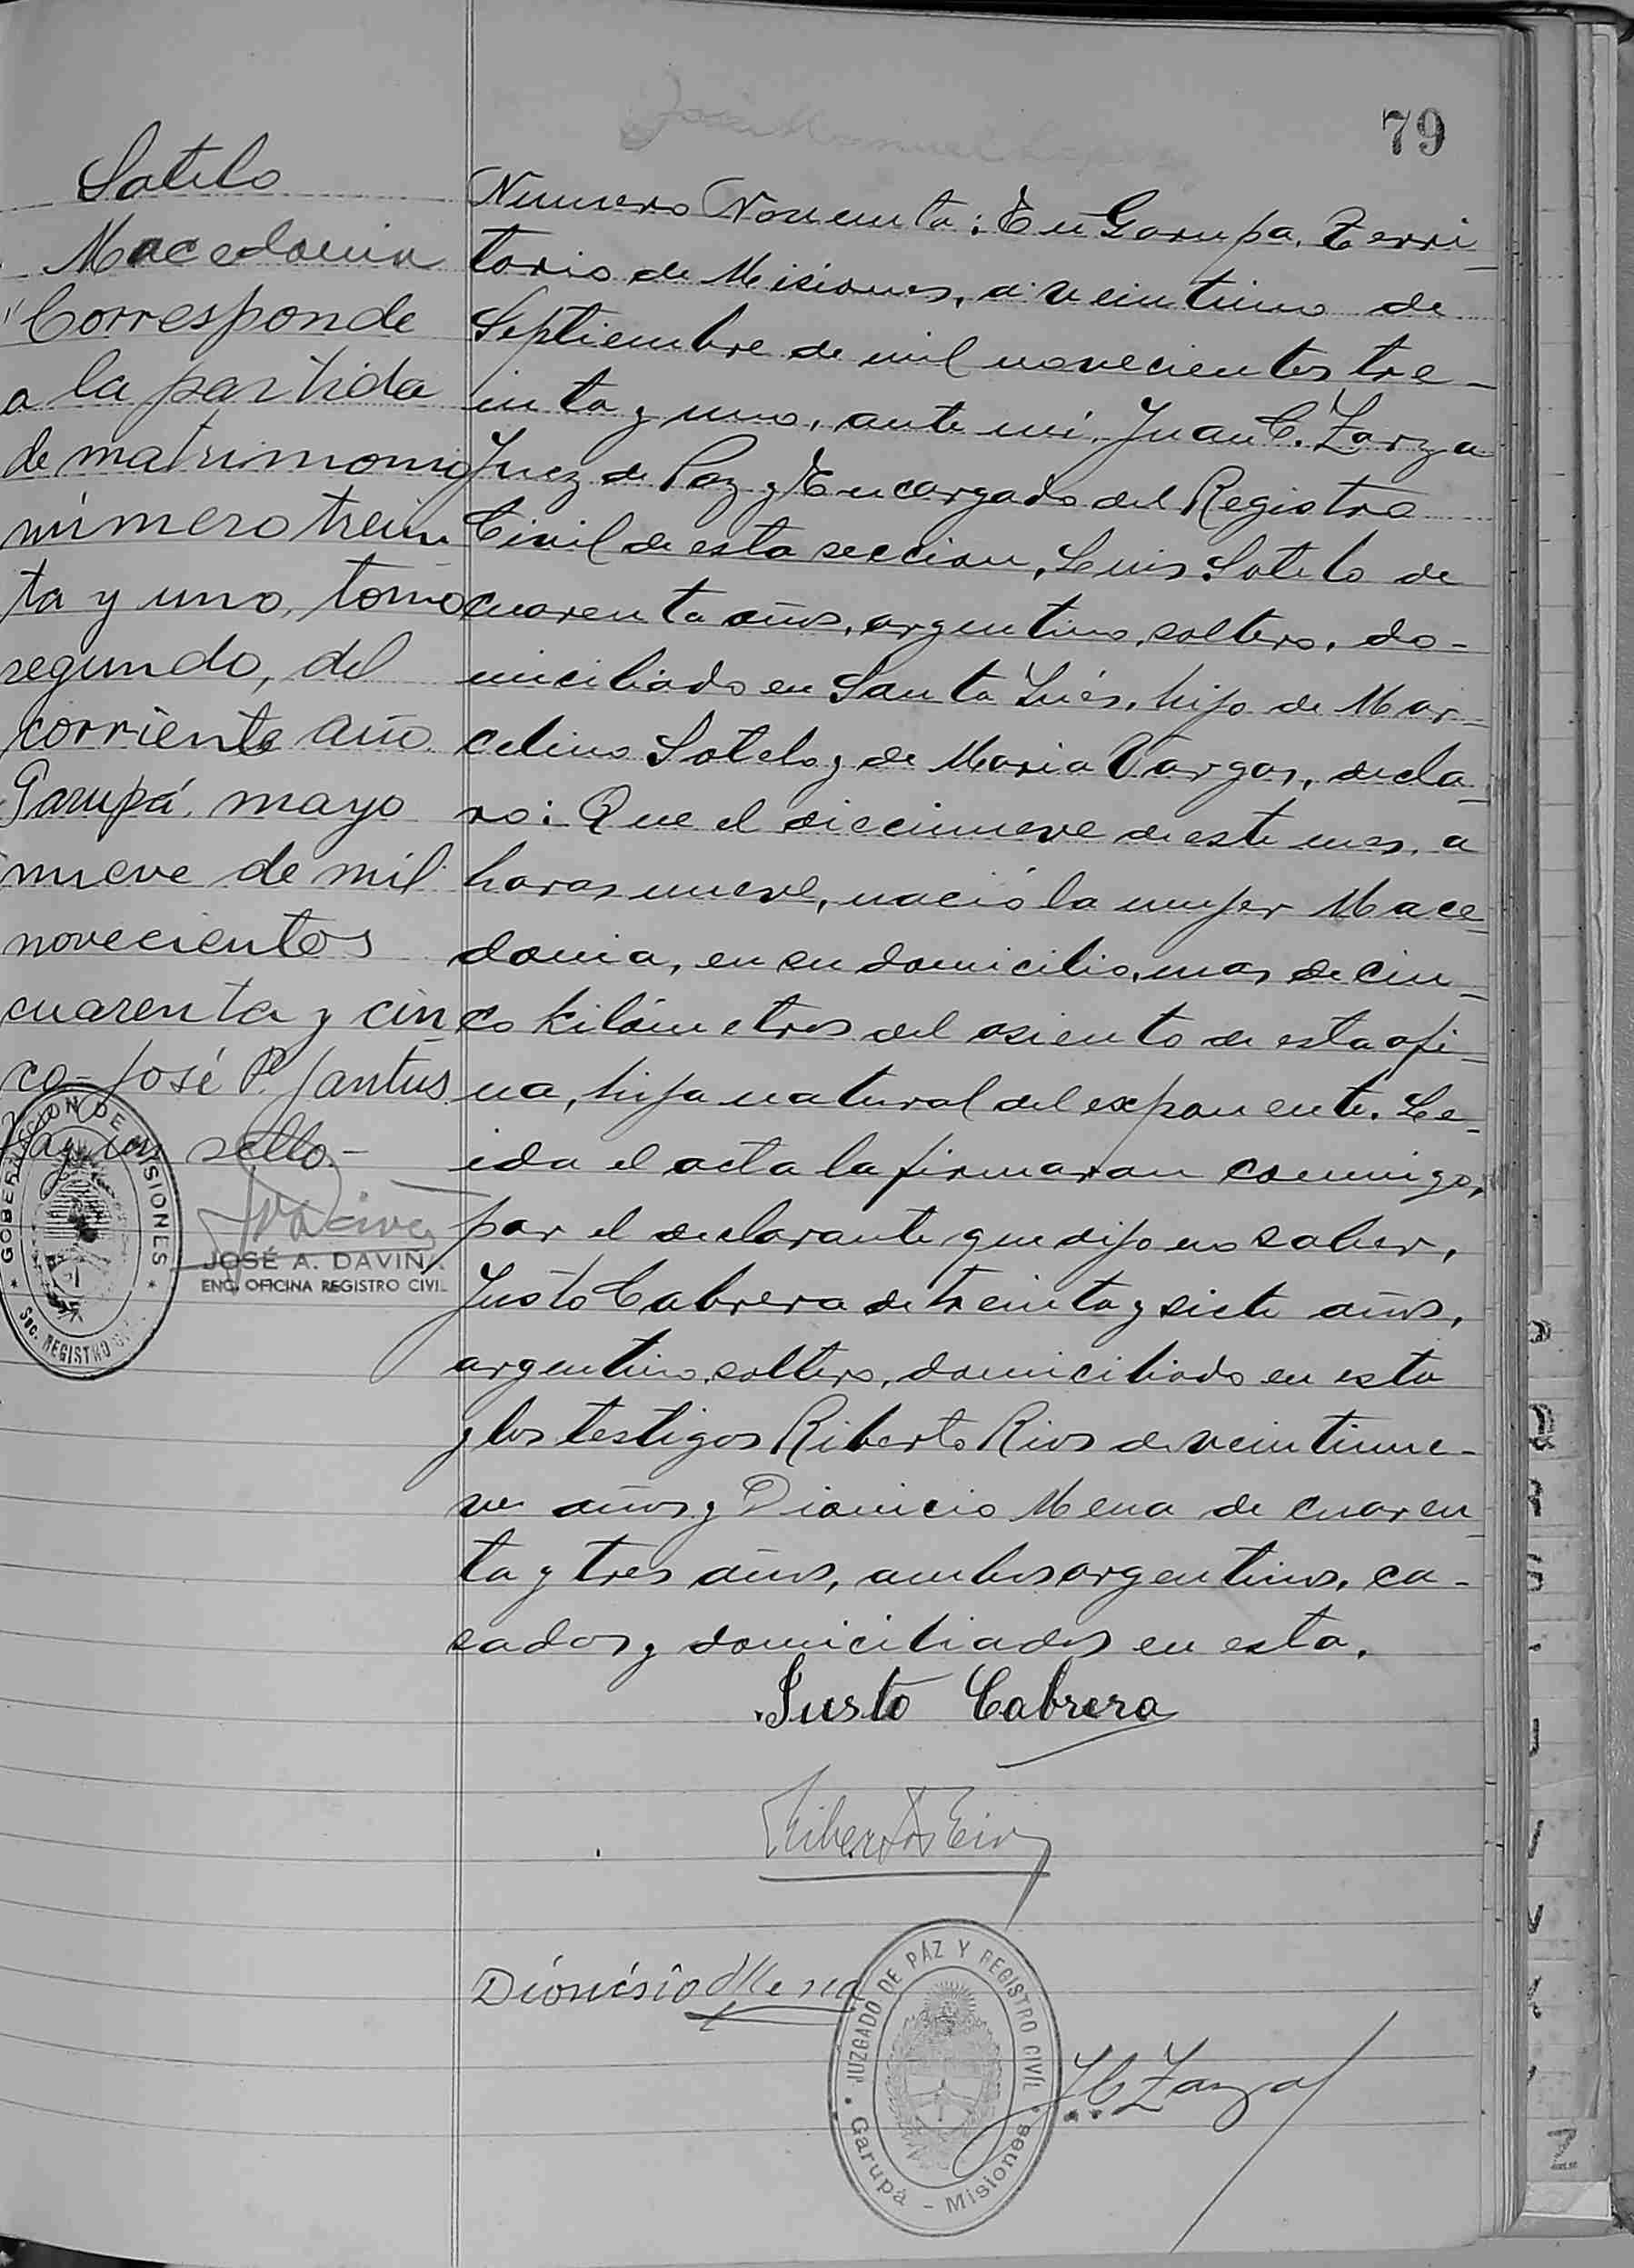 79
Sotelo
Macedonia
Corresponde
a la partida
de matrimonio
número trein
ta y uno, tomo
segundo, del
corriente año
Garupá, mayo
nueve de mil
novecientos
cuarenta y cin
co- José P. Jantus
Hay un sello.-
GOBERNACION DE MISIONES
Sec. REGISTRO CIVIL
JOSÉ A. DAVIÑA
ENC. OFICINA REGISTRO CIVIL
Numero Noventa: En Garupa, Terri-
torio de Misiones, a veintiuno de
Septiembre de mil novecientos tre-
inta y uno, ante mi, Juan C. Zarza
Juez de Paz y Encargado del Registro
Civil de esta seccion, Luis Sotelo de
cuarenta años, argentino, soltero, do-
miciliado en Santa Inés, hijo de Mar-
celino Sotelo y de Maria Vargas, decla-
ro: Que el diecinueve de este mes, a
horas nueve, nació la mujer Mace-
donia, en su domicilio, mas de cin-
co kilómetros del asiento de esta ofi-
na, hija natural del exponente. Le-
ida el acta la firmaran conmigo,
por el declarante que dijo no saber,
Justo Cabrera de treinta y siete años,
argentino, soltero, domiciliado en esta
y los testigos Riberto Rios de veintinue-
ve años y Dionicio Mena de cuaren-
ta y tres años, ambos argentinos, ca-
sados y domiciliados en esta.
Justo Cabrera
Riberto Rios
Dionisio Mena
JUZGADO DE PAZ Y REGISTRO CIVIL
Garupá - Misiones
J. C. Zarza